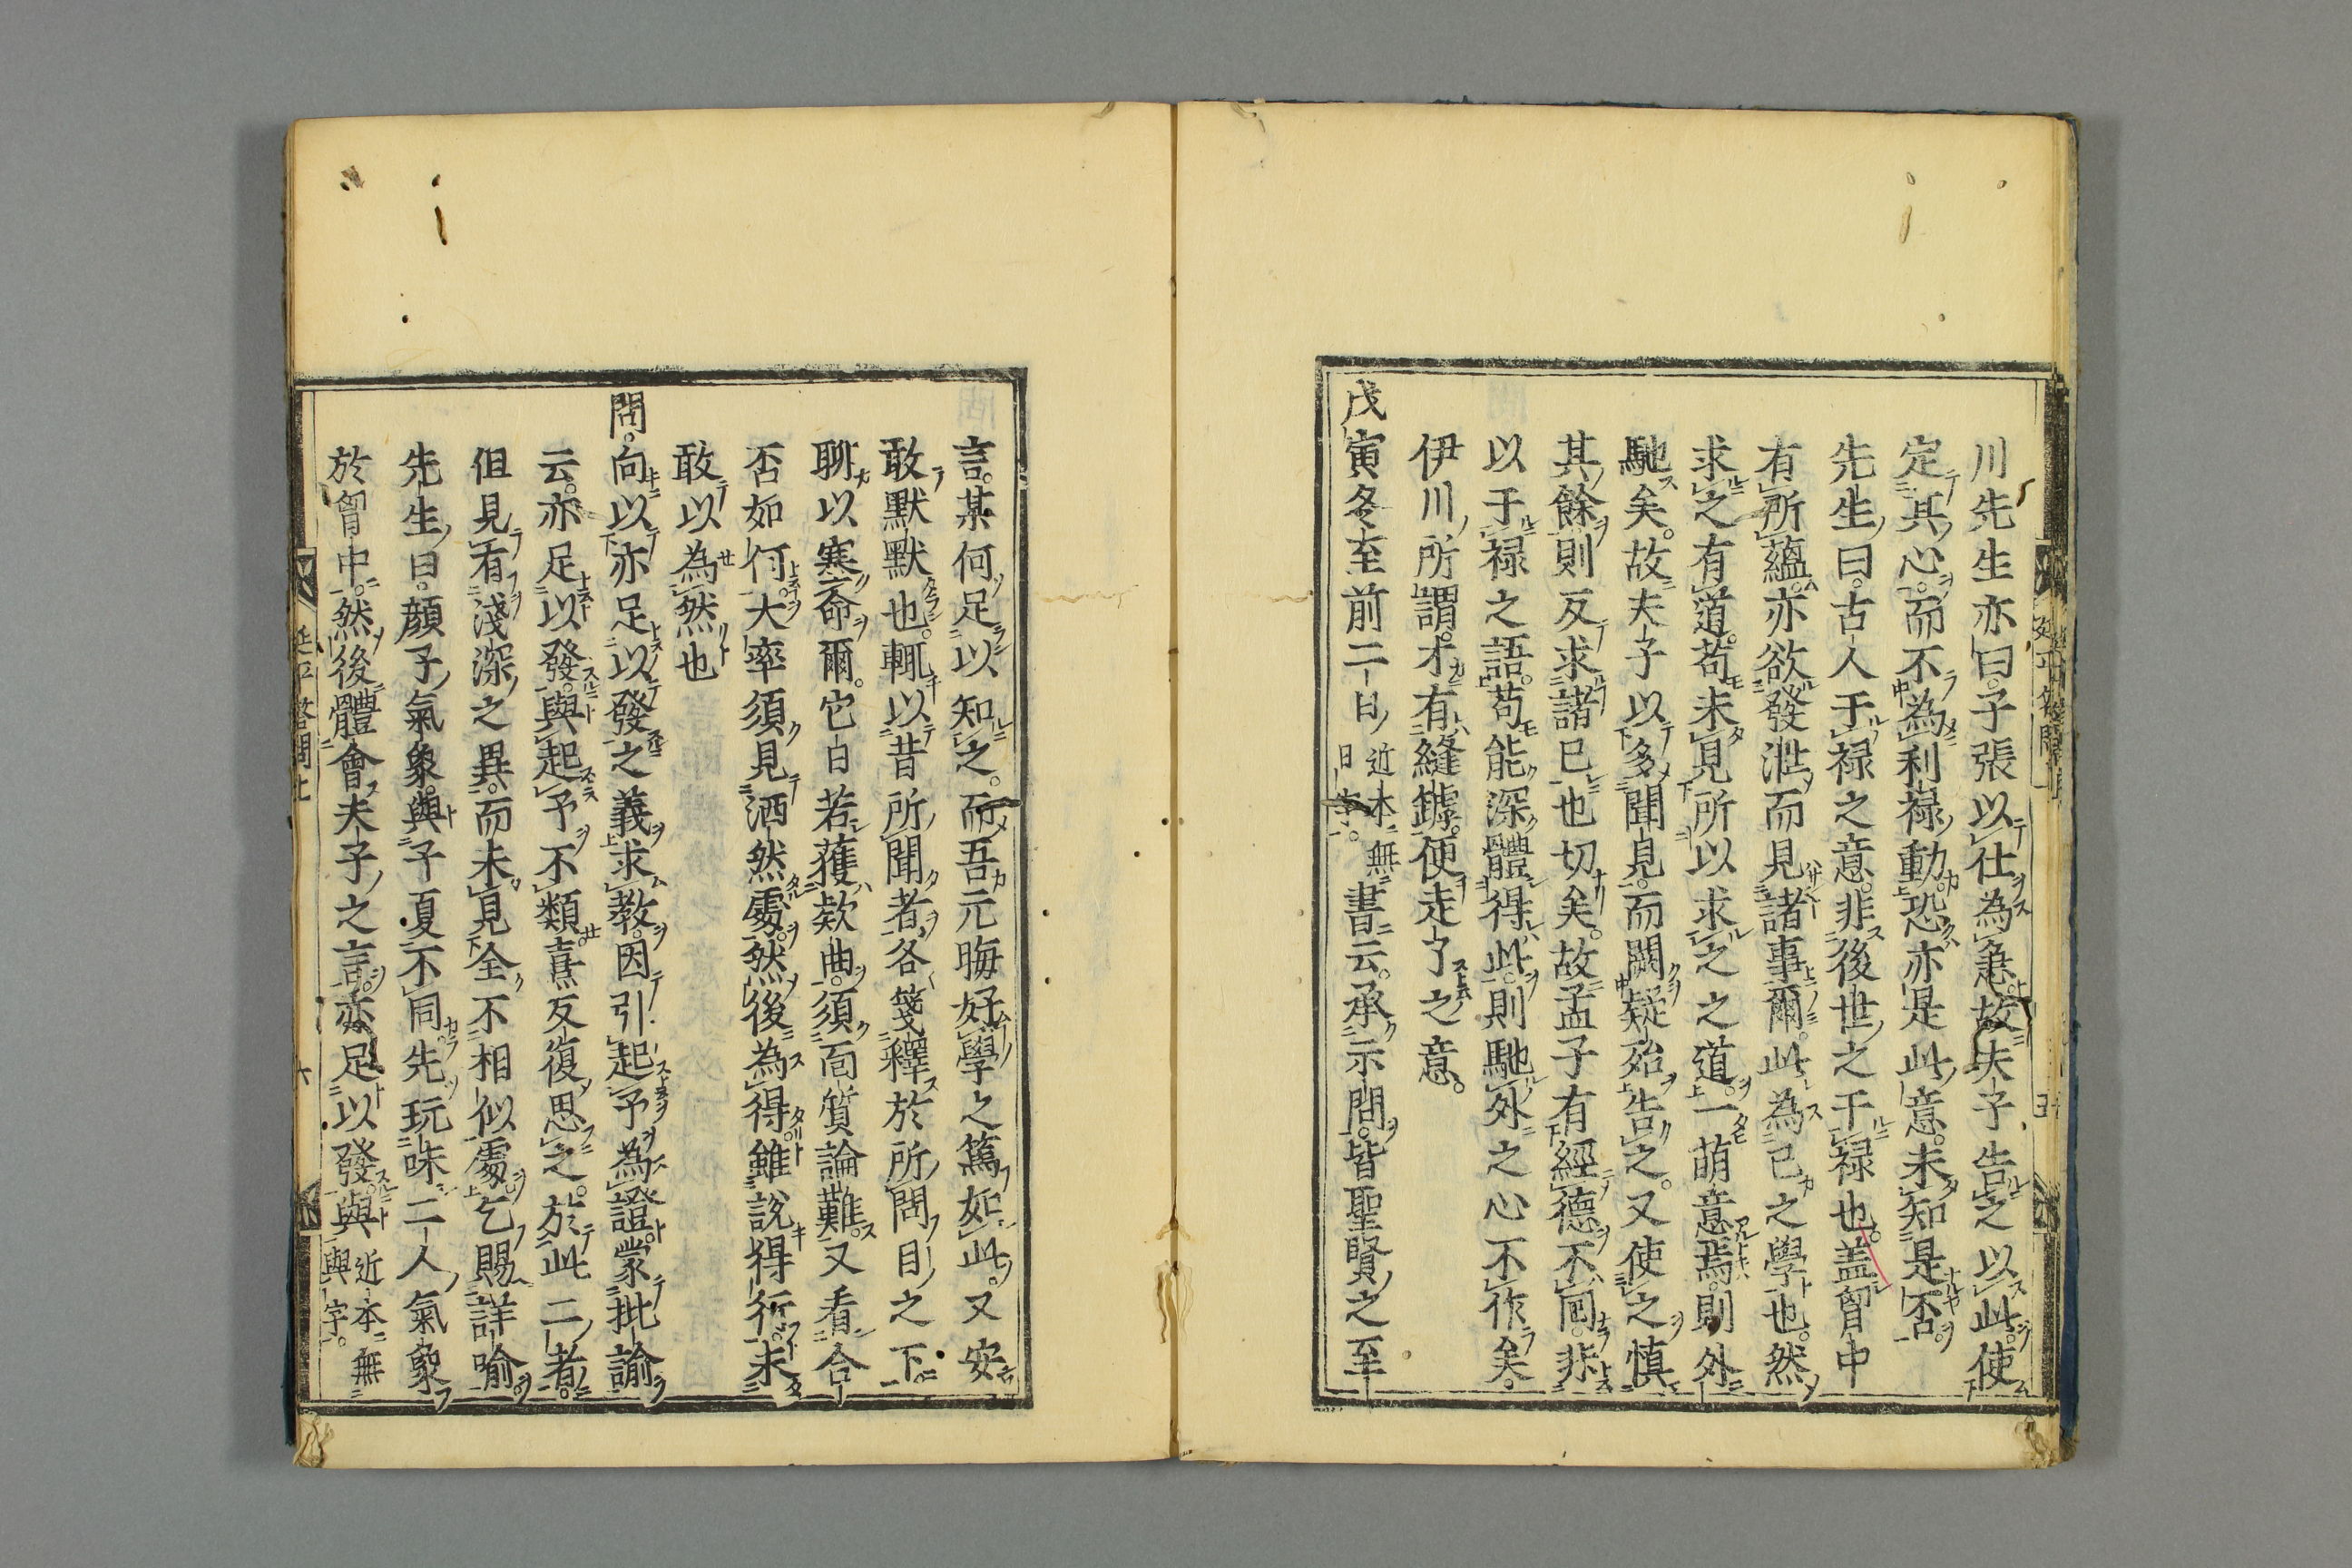 川先生亦曰。子張以仕為急。故夫子告之以此。使
定其心。而不為利祿動。恐亦是此意。未知是否。
先生曰。古人干祿之意。非後世之干祿也。盖胷中
有所蘊。亦欲發泄而見諸事爾。此為己之學也。然
求之有道。苟未見所以求之之道。一萌意焉。則外
馳矣。故夫子以多聞見。而闕疑殆告之。又使之慎
其餘。則反求諸己也切矣。故孟子有經德不回。非
以干祿之語。苟能深體得此。則馳外之心不作矣。
伊川所謂。才有縫罅。便走了之意。
戊寅冬至前二日 近本無日字。 書云。承示問。皆聖賢之至
言。某何足以知之。而吾元晦好學之篤如此。又安
敢默默也。輒以昔所聞者。各箋釋於所問目之下。
聊以塞命爾。它日若獲欵曲。須面質論難。又看合
否如何。大率須見洒然處。然後為得。雖說得行。未
敢以為然也
問。向以亦足以發之義求教。因引起予為證。蒙批諭
云。亦足以發。與起予不類。熹反復思之。於此二者。
但見有淺深之異。而未見全不相似處。乞賜詳喻。
先生曰。顏子氣象。與子夏不同。先玩味二人氣象
於胷中。然後體會夫子之言。亦足以發。與 近本無與字。